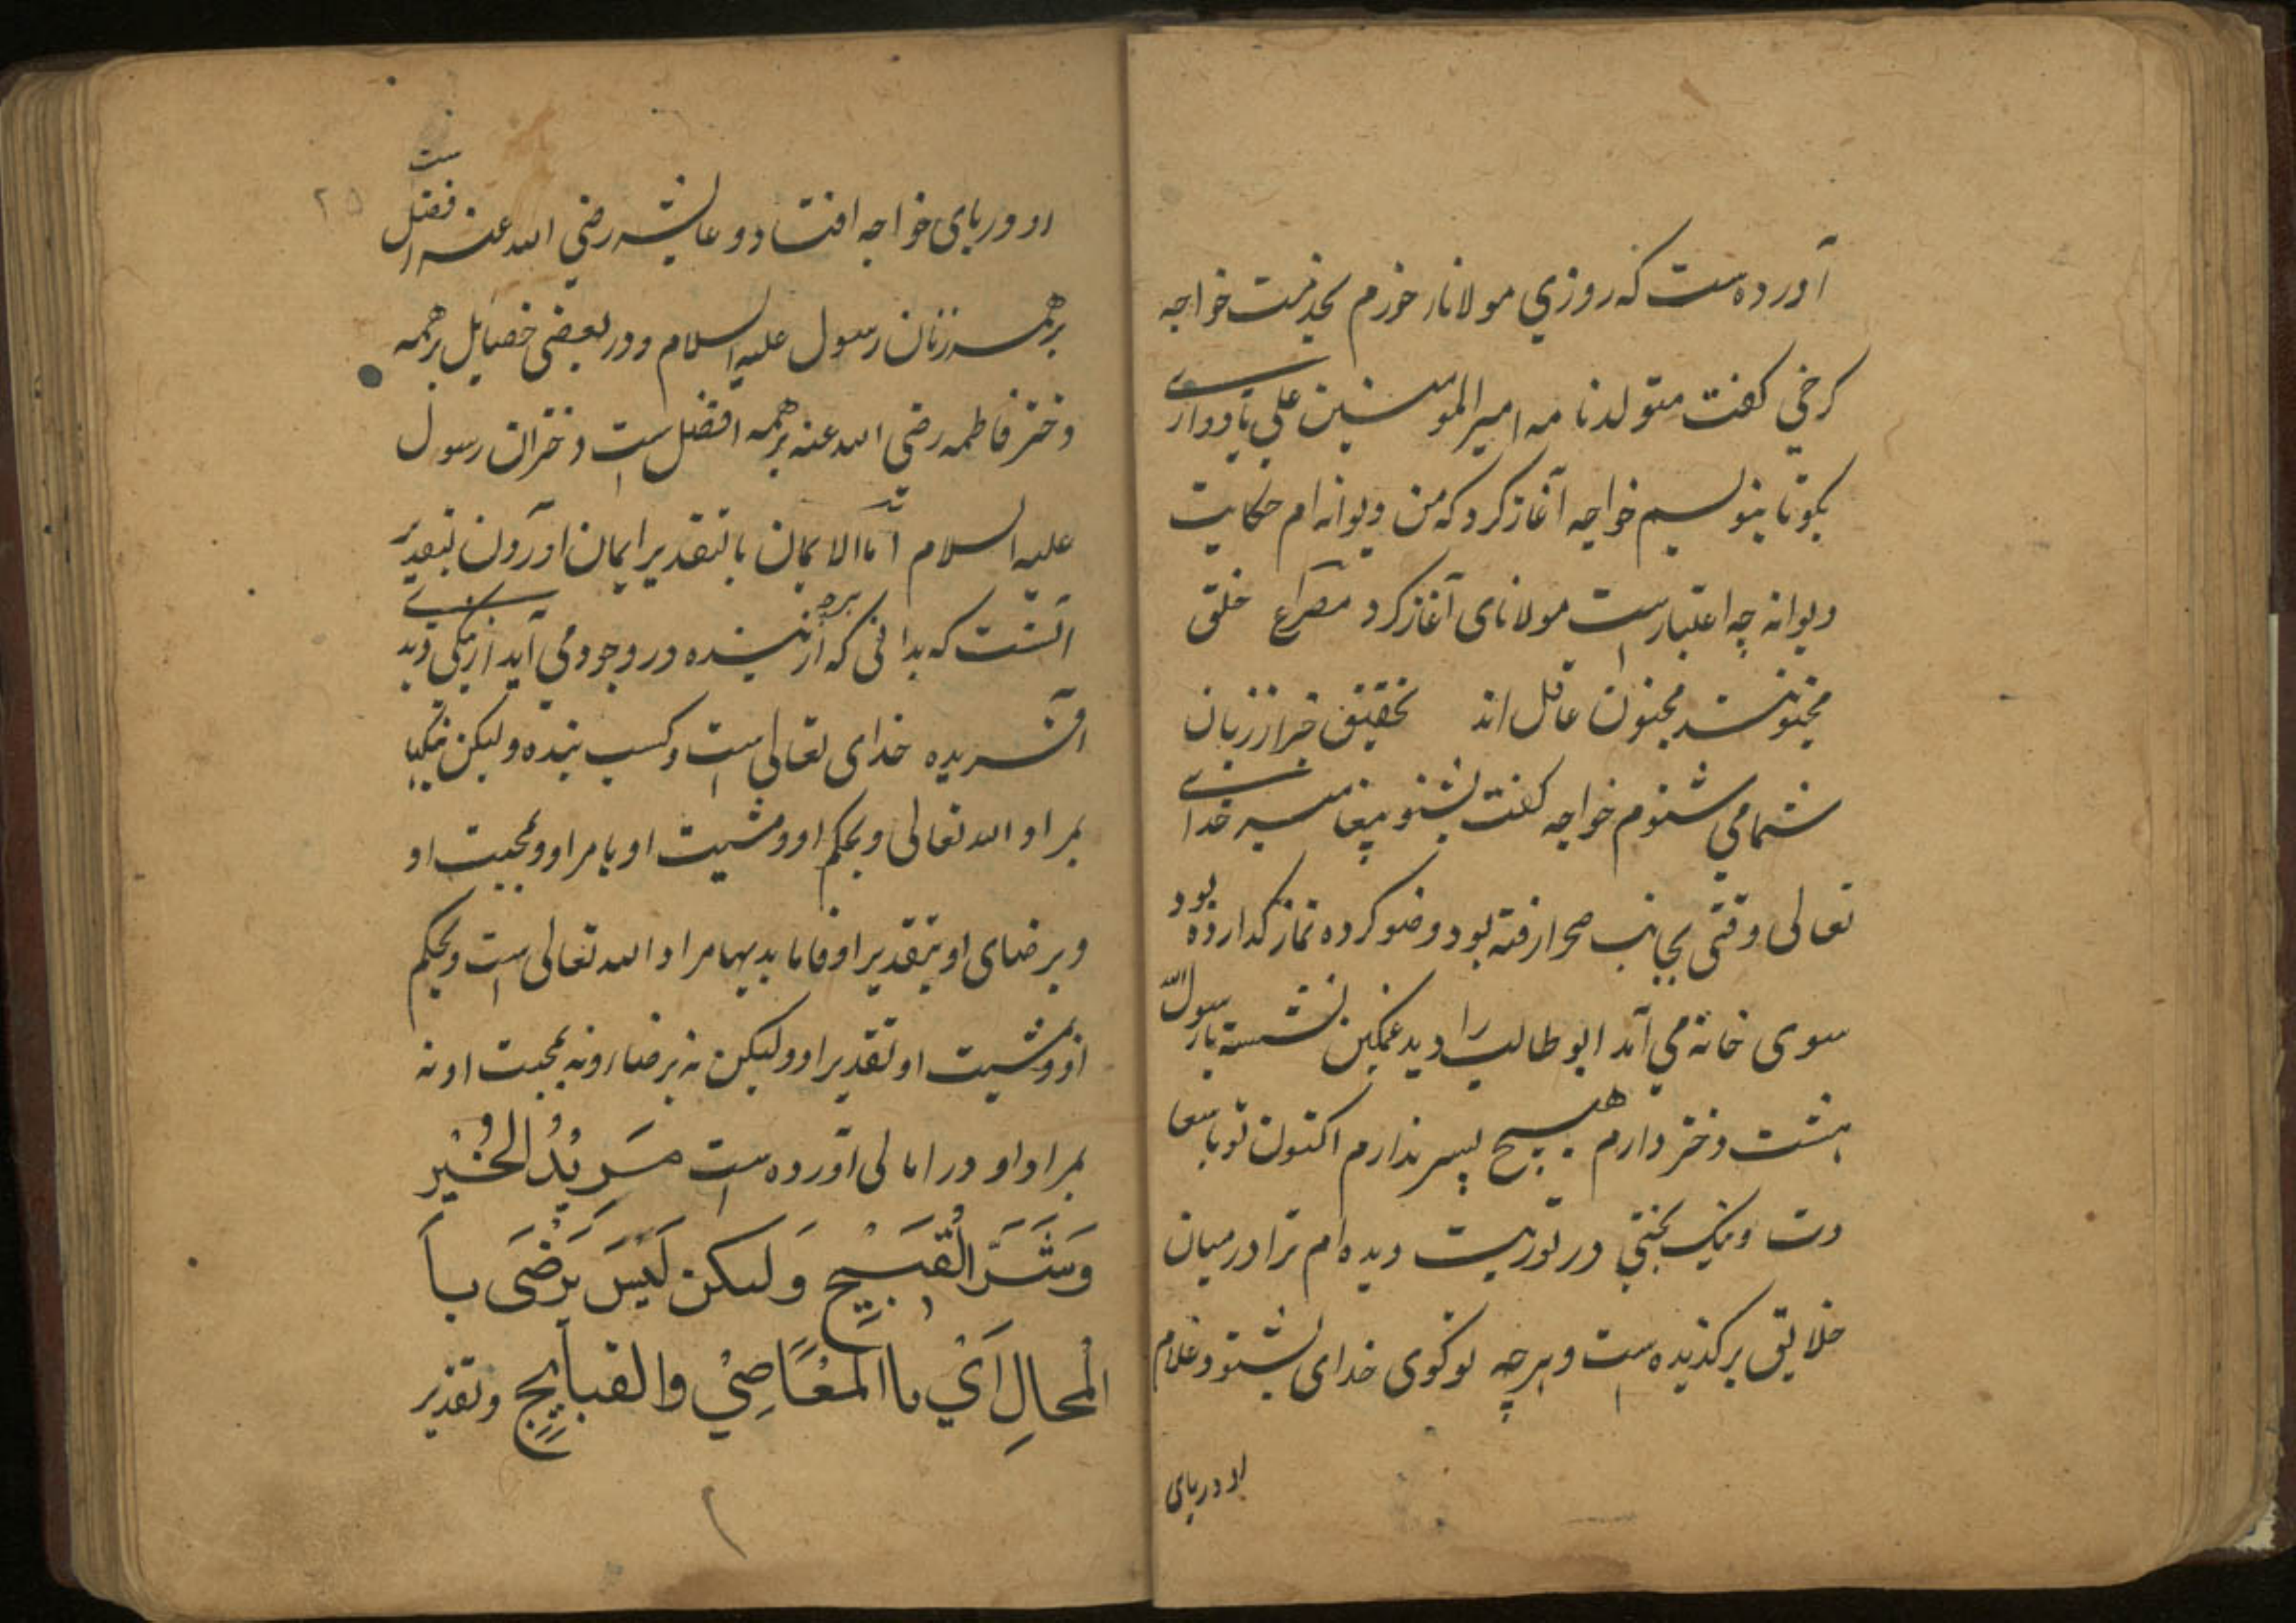 آورده است که روزی مولانا خورم بخدمت خواجه
کرخی کفت متولد نامه امیر المومنین علی یاد داری
بکو تا بنویسم خواجه آغاز کرد که من دیوانه ام حکایت
دیوانه چه اعتبار است مولانای آغاز کرد مصراع خلق
مجنونند مجنون عاقل اند تحقیق خبر از زبان
شما می شنوم خواجه کفت بشنو پیغامبر خدای
تعالی وقتی بجانب صحرا رفته بود وضو کرده نماز کدارده بود
سوی خانه می آمد ابو طالب را دید غمکین نشسته یا رسول الله
هشت دختر دارم هیچ پسر ندارم اکنون تو با سعا
دت و نیک بختی در توریت دیده ام ترا در میان
خلایق برکذیده است و هرچه تو کوی خدای بشنود غلام
او در پای
او در پای خواجه افتاد و عایشه رضی الله عنها فضل ست
بر همه زنان رسول علیه السلام و در بعضی خصایل بر همه
دختر فاطمه رضی الله عنه بر همه افضل است دختران رسول
علیه السلام اما الایمان بالتقدیر ایمان اوردن بتقدیر
انست که بدانی که هرچه از بنده در وجود می آید از نیکی و بدی
افریده خدای تعالی است و کسب بنده ولیکن نیکیها
بمراد الله تعالی و بحکم او و مشیت او بامر او و محبت او
و برضای او بتقدیر او فاما بدیها مراد الله تعالی است و بحکم
او و مشیت او تقدیر او و لیکن نه برضا او و نه بمحبت او نه
بمراد او و در امالی آورده است مَرِیْدُ الخَیْرِ
وَشَرَّ القَبِیْحِ وَلکن لَیْسَ یَرْضَی با
الْمحالِ اَیْ باالمَعَاصِیْ والقبایِحِ و تقدیر